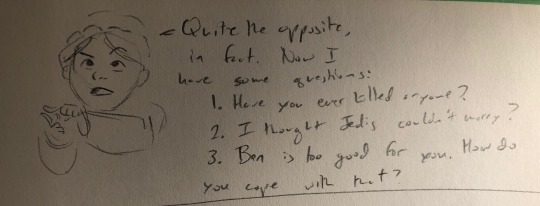 = Quite the opposite,
in fact. Now I
have some questions:
1. Have you ever killed anyone?
2. I thought Jedis couldn't marry?
3. Ben is too good for you. How do
you cope with that?